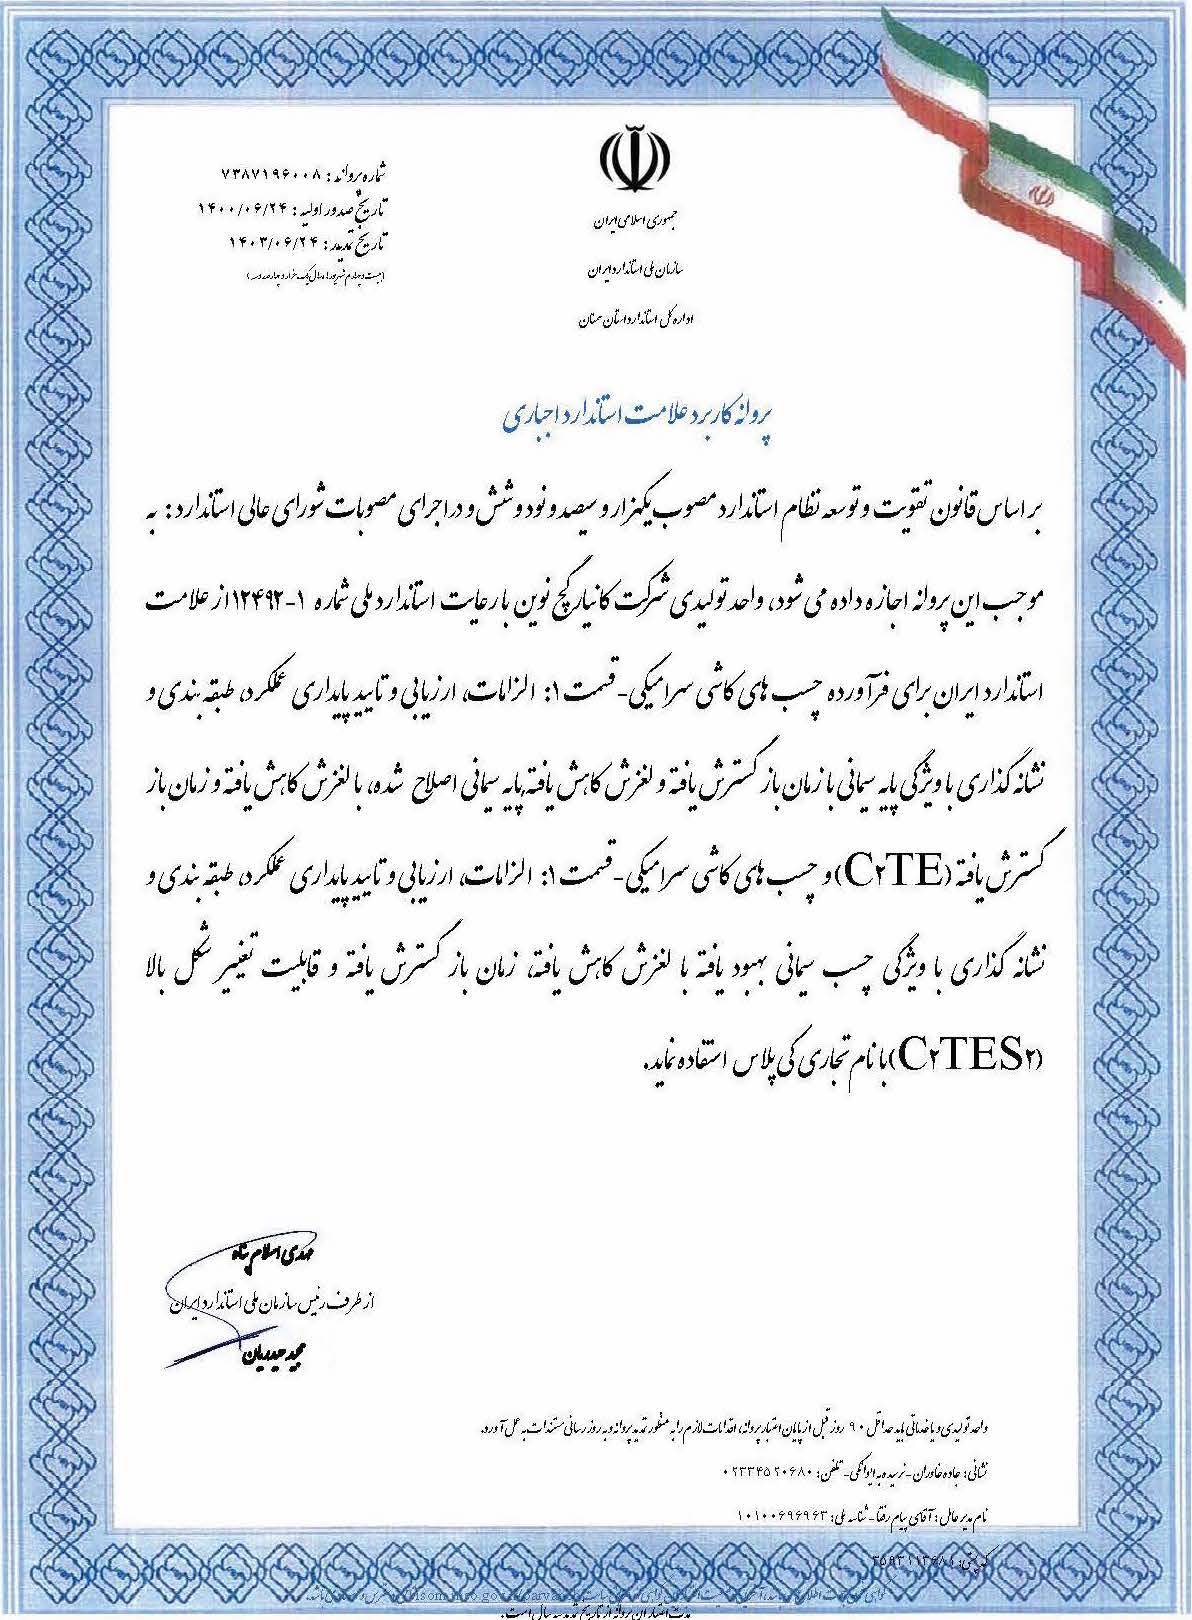 جمهوری اسلامی ایران
سازمان ملی استاندارد ایران
اداره کل استاندارد استان سمنان
شماره پروانه : ۷۳۸۷۱۹۶۰۰۸
تاریخ صدور اولیه : ۱۴۰۰/۰۶/۲۴
تاریخ تمدید : ۱۴۰۳/۰۶/۲۴
(بیست و چهارم شهریور ماه سال یک هزار و چهارصد و سه)
پروانه کاربرد علامت استاندارد اجباری
بر اساس قانون تقویت و توسعه نظام استاندارد مصوب یکهزار و سیصد و نود و شش و در اجرای مصوبات شورای عالی استاندارد : به
موجب این پروانه اجازه داده می شود، واحد تولیدی شرکت کانیار گچ نوین با رعایت استاندارد ملی شماره ۱-۱۲۴۹۲ از علامت
استاندارد ایران برای فرآورده چسب های کاشی سرامیکی - قسمت ۱: الزامات، ارزیابی و تایید پایداری عملکرد، طبقه بندی و
نشانه گذاری با ویژگی پایه سیمانی با زمان باز گسترش یافته و لغزش کاهش یافته،پایه سیمانی اصلاح شده، با لغزش کاهش یافته و زمان باز
گسترش یافته (C۲TE) و چسب های کاشی سرامیکی - قسمت ۱: الزامات، ارزیابی و تایید پایداری عملکرد، طبقه بندی و
نشانه گذاری با ویژگی چسب سیمانی بهبود یافته با لغزش کاهش یافته، زمان باز گسترش یافته و قابلیت تغییر شکل بالا
(C۲TES۲) با نام تجاری کی پلاس استفاده نماید.
مهدی اسلام پناه
از طرف رئیس سازمان ملی استاندارد ایران
مجید حیدریان
واحد تولیدی و یا خدماتی باید حداقل ۹۰ روز قبل از پایان اعتبار پروانه، اقدامات لازم را به منظور تمدید پروانه و به روز رسانی مستندات به عمل آورد.
نشانی : جاده خاوران - نرسیده به ایوانکی - تلفن : ۰۲۳۳۴۵۲۰۶۸۰
نام مدیر عامل : آقای پیام رفقا - شناسه ملی : ۱۰۱۰۰۶۹۶۹۶۳
کد پستی : ۳۵۹۳۱۱۳۶۸۱
مدت اعتبار این پروانه از تاریخ تمدید سه سال است.